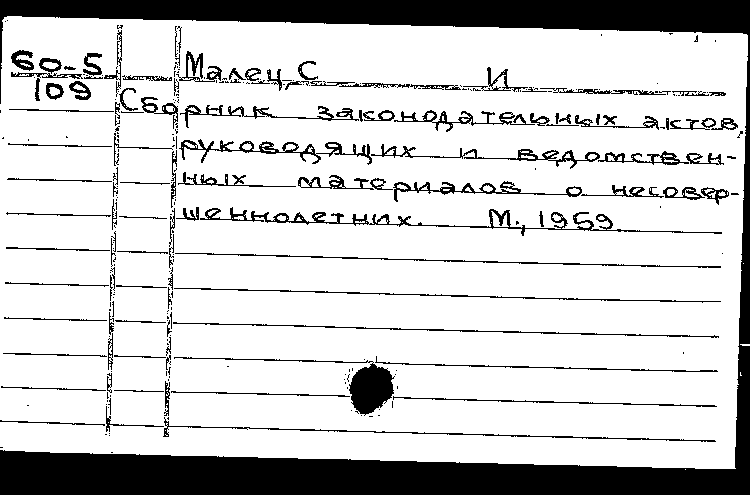 60-5 Малец, С И
109 Сборник законодательных актов,
руководящих и ведомствен-
ных материалов о несовер-
шеннолетних. М., 1959.